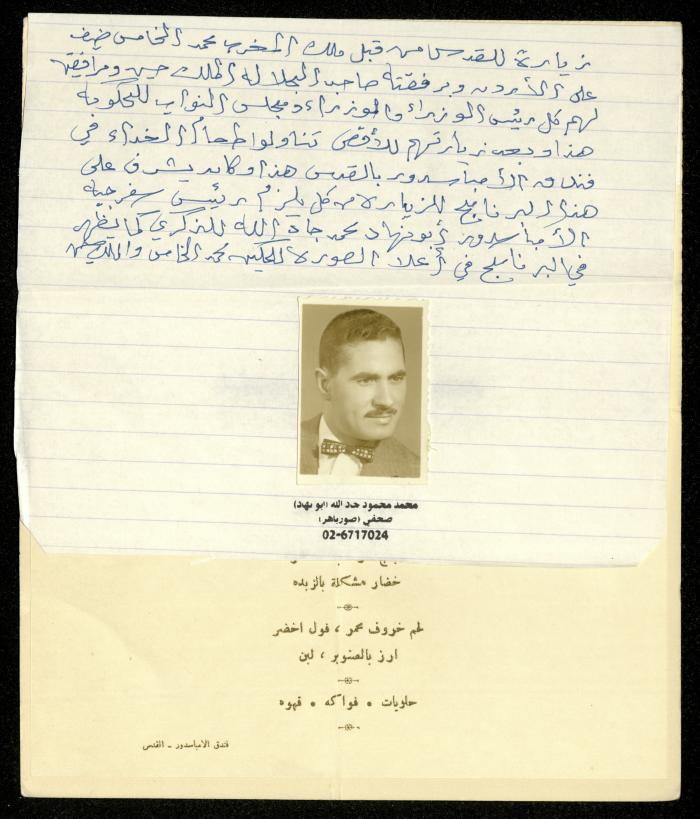 زيارة للقدس من قبل ملك المغرب محمد الخامس ضيف
على الأردن وبرفقته صاحب الجلالة الملك حسين ومرافقين
لهم كل رئيس الوزراء والوزراء ومجلس النواب للحكومة
هذا وبعد زيارتهم للأقصى تناولوا طعام الغداء في
فندق الأمباسدور بالقدس هذا وكان يشرف على
هذا البرنامج للزيارة من كل يلزم رئيس سفرجية
الأمباسدور أبو نهاد محمد جاد الله للذكرى كما يظهر
في البرنامج في أعلا الصورة للملكين محمد الخامس والملك حسين
محمد محمود جد الله (ابو نهد)
صحفي (صورباهر)
02-6717024
خضار مشكلة بالزبده
لحم خروف محمر ، فول اخضر
ارز بالصنوبر ، لبن
حلويات • فواكه • قهوه
فندق الامباسدور - القدس